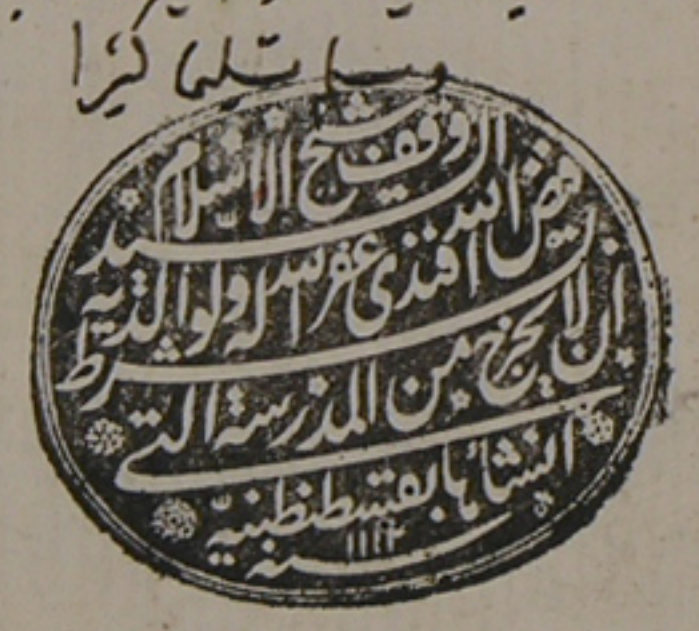 وسلم تسليما كثيرا
وقف شيخ الاسلام السيد
فيض الله افندى غفر الله له ولوالديه
بشرط ان لا يخرج من المدرسة التى
انشأها بقسطنطنيّة
سنه ١١١٢